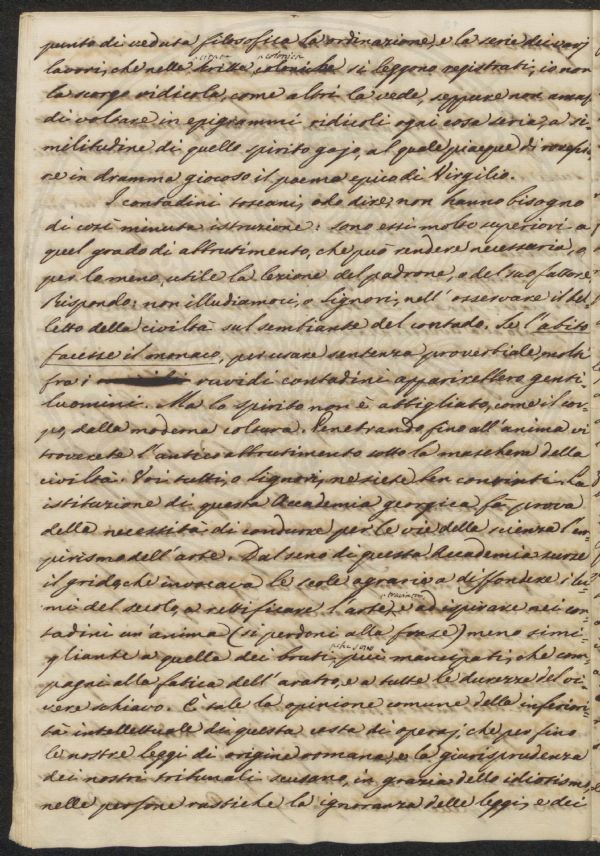 punto di veduta filosofica la ordinazione, e la serie dei varj
lavori, che nelle si leggono registrati, io non
la scorgo ridicola, come altri la vede, seppure non ama
di voltare in epigrammi ridicoli ogni cosa seria, a si-
militudine di quello spirito gajo, al quale piacque di
in dramma giocoso il poema epico di Virgilio.
I contadini toscani, odo dire, non hanno bisogno
di così minuta istruzione: sono essi molto superiori a
quel grado di abbrutimento, che può rendere necessaria, o
per lo meno, utile la lezione del padrone, o del suo fattore
Rispondo: non illudiamoci, o Signori, nell'osservare il bel-
letto della civiltà sul sembiante del contado. Se l'abito
facesse il monaco, per usare sentenza proverbiale, molti
fra i ruvidi contadini apparirebbero genti-
luomini. Ma lo spirito non è attigliato, come il cor-
po, dalla moderna coltura. Penetrando fino all'anima vi
trovereте l'antico abbrutimento sotto la maschera della
civiltà. Voi tutti, o Signori, ne siete ben convinti. La
istituzione di questa Accademia georgica fà prova
della necessità di condurre per le vie della scienza l'em-
pirismo dell'arte. Dal seno di questa Accademia surse
il grido, che invocava le scole agrarie a diffondere i lu-
mi del secolo, a rettificare l'arte, e ad ispirare nei con-
tadini un'anima (si perdoni alla frase) meno simi-
gliante a quella dei bruti, più mansueti, che com-
pagni alla fatica dell'aratro, e a tutte le durezze del vi-
vere schiavo. È tale la opinione comune della inferiori-
tà intellettuale di questa casta di operaj, che per fino
le nostre leggi di origine romana, e la giurisprudenza
dei nostri tribunali scusano, in grazia dello idiotismo,
nelle persone rustiche la ignoranza delle leggi, e dei